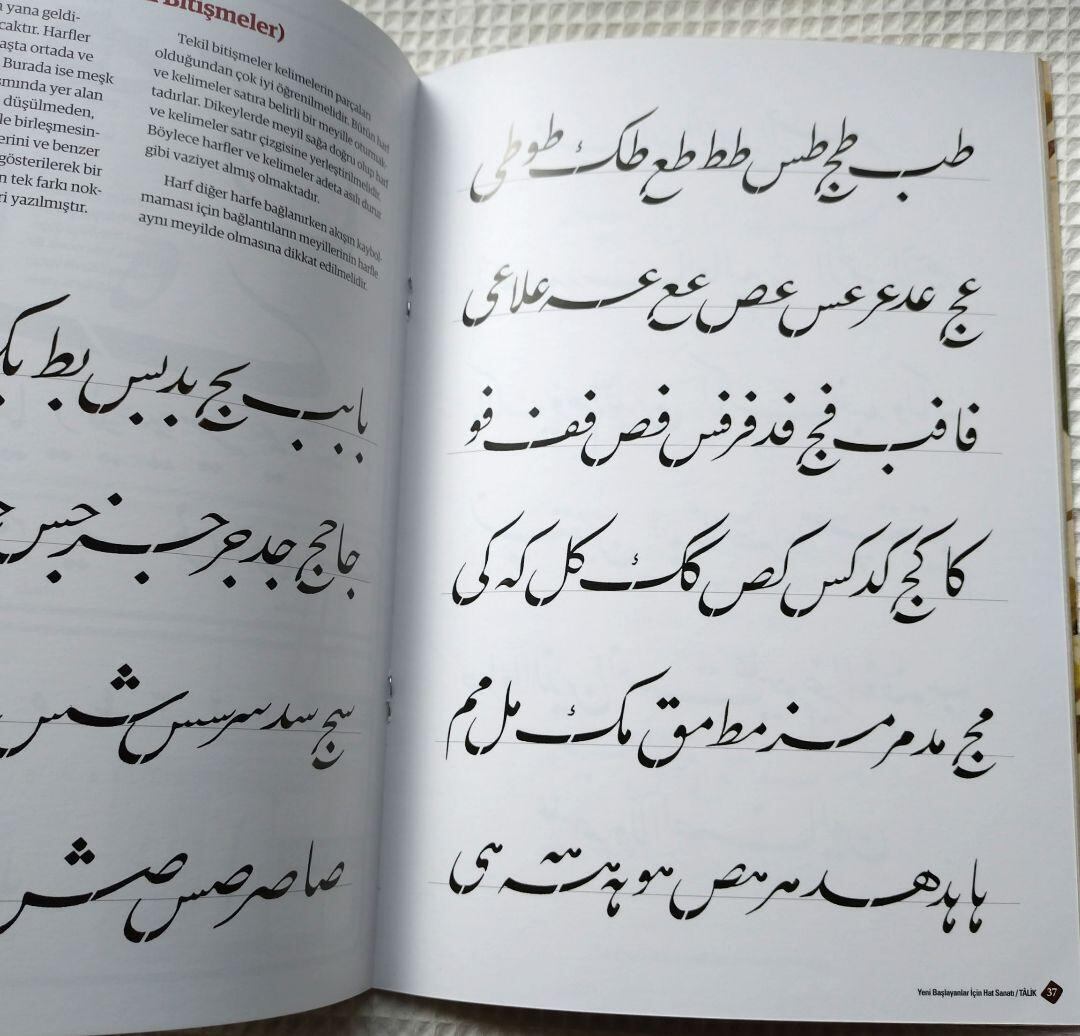 Bitişmeler)
yana geldi-
caktır. Harfler
aşta ortada ve
Burada ise meşk
smında yer alan
düşülmeden,
le birleşmesin-
erini ve benzer
gösterilerek bir
n tek farkı nok-
ri yazılmıştır.
Tekil bitişmeler kelimelerin parçaları
olduğundan çok iyi öğrenilmelidir. Bütün harf
ve kelimeler satıra belirli bir meyille oturmak-
tadırlar. Dikeylerde meyil sağa doğru olup harf
ve kelimeler satır çizgisine yerleştirilmelidir.
Böylece harfler ve kelimeler adeta asılı durur
gibi vaziyet almış olmaktadır.
Harf diğer harfe bağlanırken akışın kaybol-
maması için bağlantıların meyillerinin harfle
aynı meyilde olmasına dikkat edilmelidir.
با بب بج بد بس بط
جا جج جد جر جس
سج سد سر سس
صا صر صس صش
طب طج طس طط طع طک طو طی
عج عد عر عس عص عع عه علا عی
فا فب فج فد فر فس فص فف فو
کا کج کد کس کص کک کل که کی
مج مد مر مز مط مق مک مل مم
ها هد هد هر هص هو هه هی
Yeni Başlayanlar İçin Hat Sanatı / TÂLİK 37